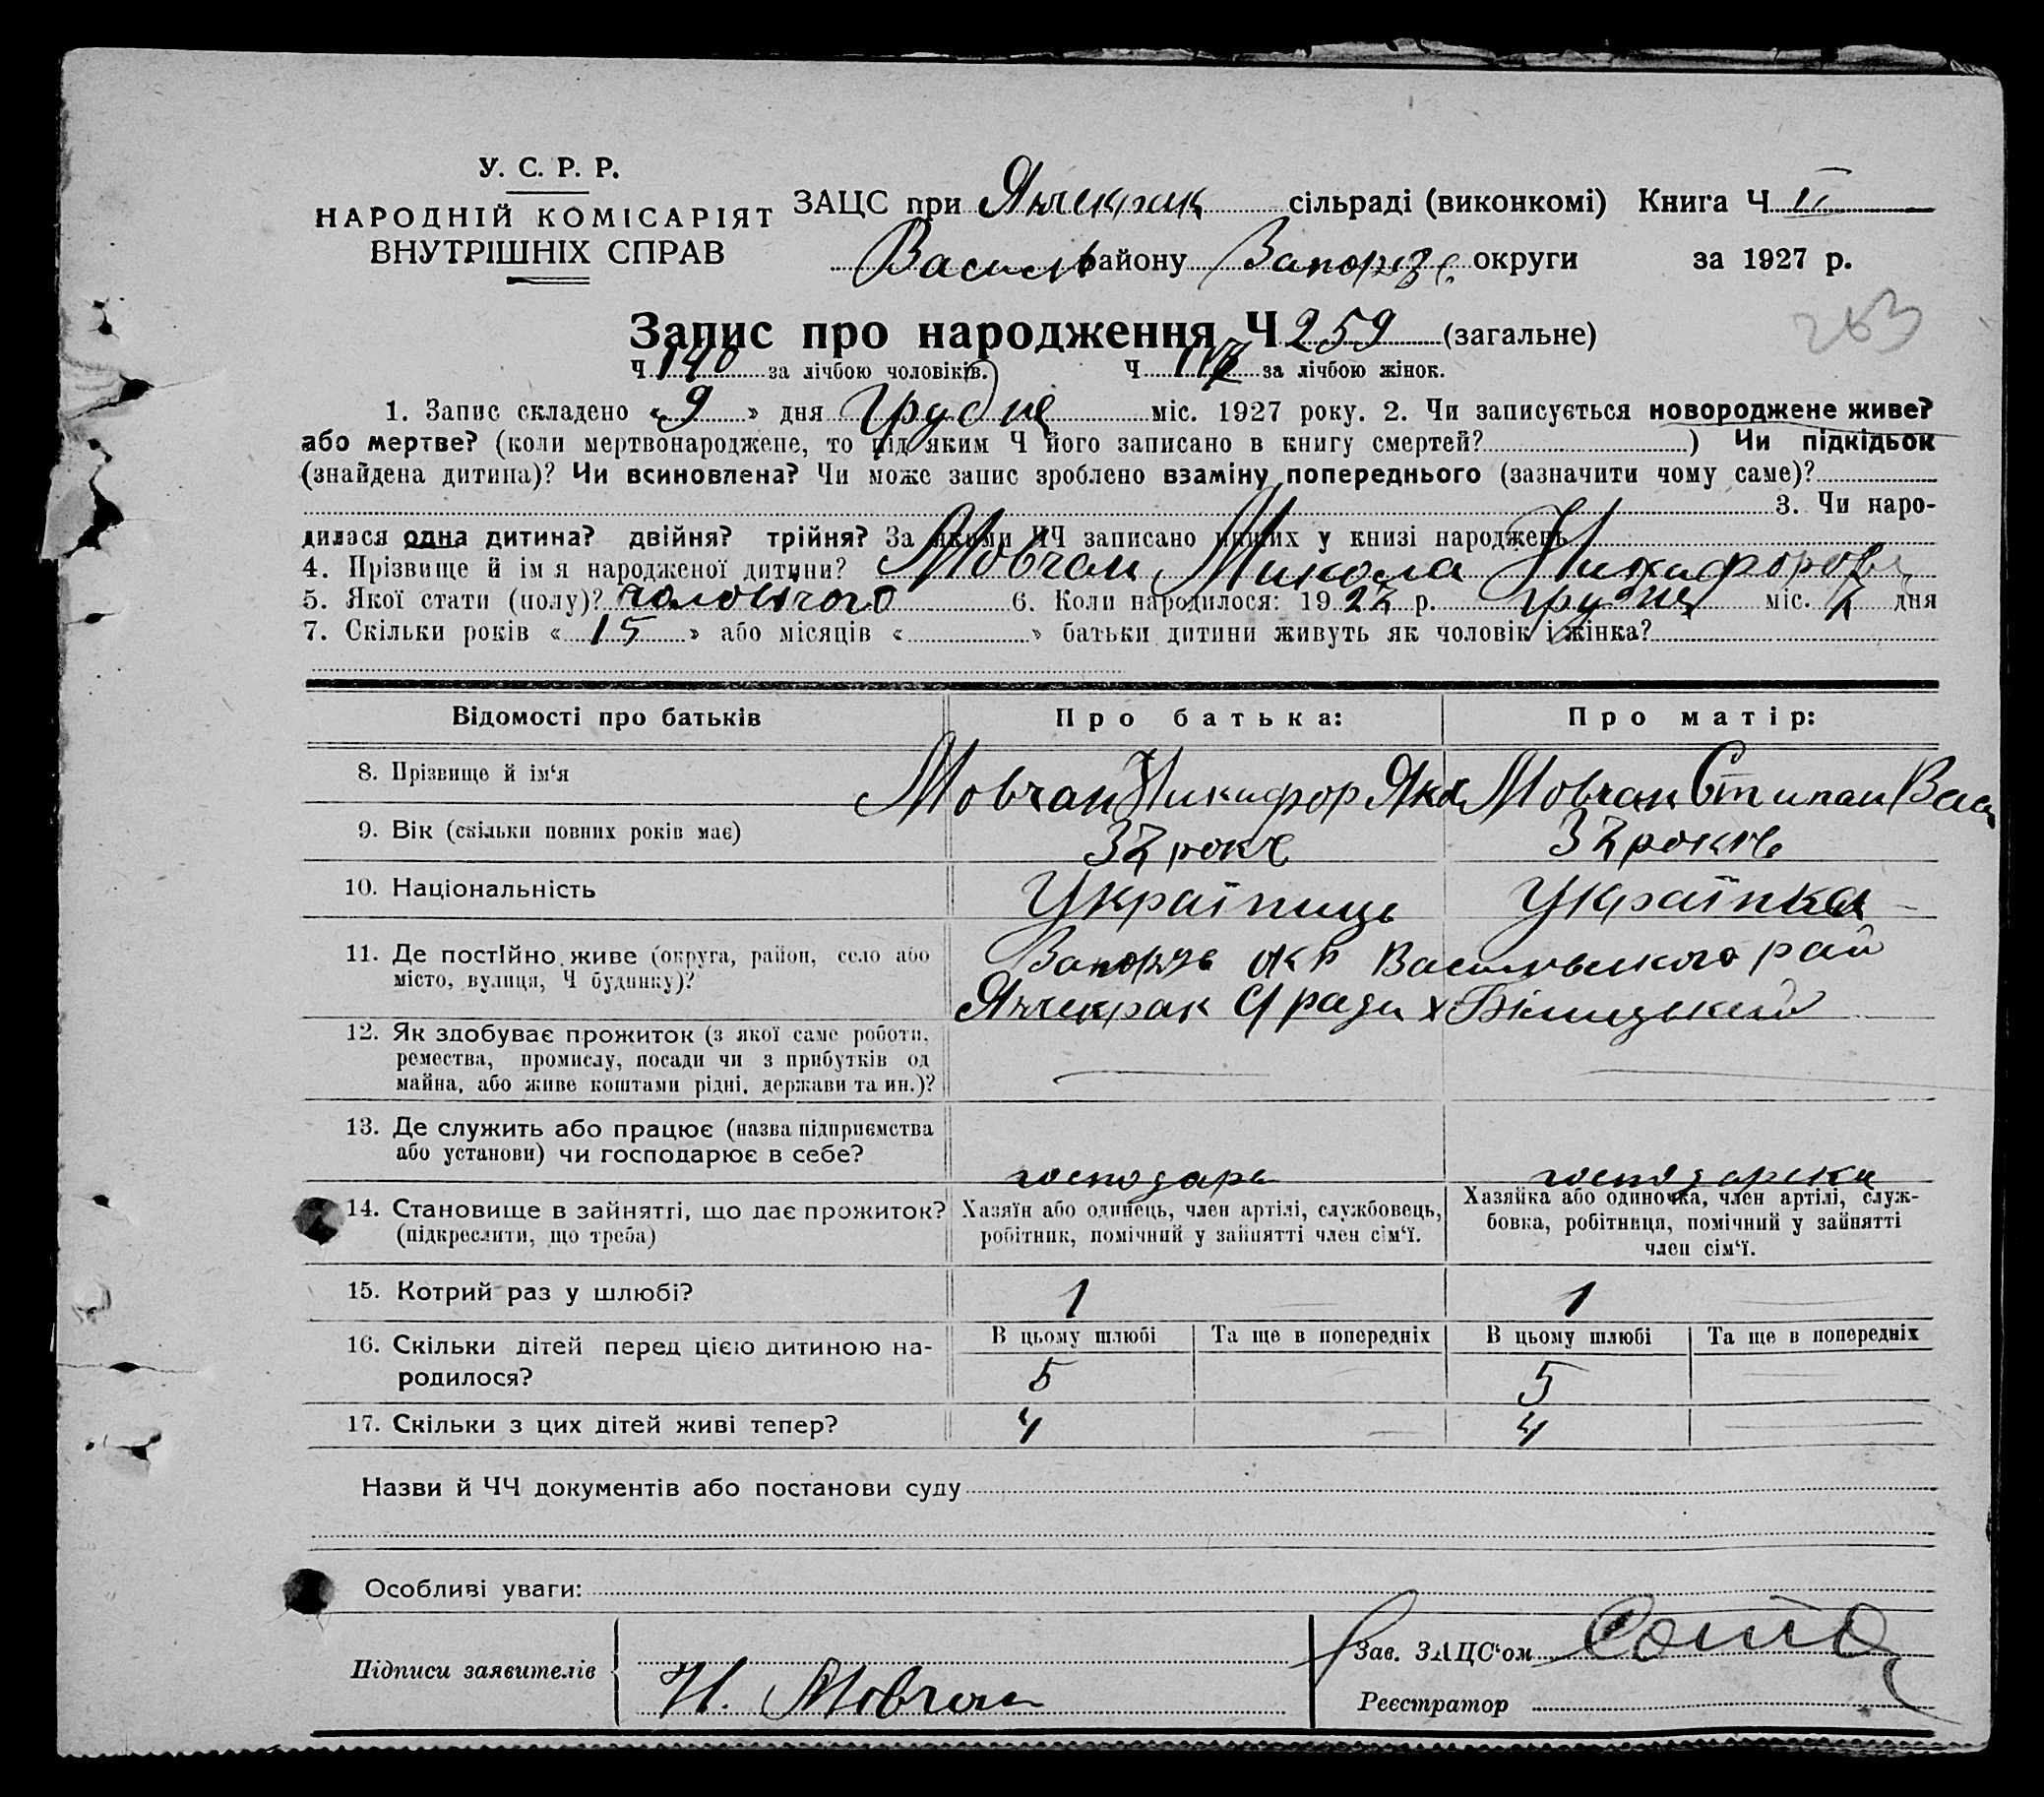 У. С. Р. Р.
НАРОДНІЙ КОМІСАРІЯТ
ВНУТРІШНІХ СПРАВ
ЗАЦС при Янчекрак сільраді (виконкомі) Книга Ч II
Василь району Запоріз. округи за 1927 р.
263
Запис про народження Ч 259 (загальне)
Ч 140 за лічбою чоловіків. Ч за лічбою жінок.
1. Запис складено « 9 » дня Грудня міс. 1927 року. 2. Чи записується новороджене живе?
або мертве? (коли мертвонароджене, то під яким Ч його записано в книгу смертей? ) Чи підкідьок
(знайдена дитина)? Чи всиновлена? Чи може запис зроблено взаміну попереднього (зазначити чому саме)?
3. Чи наро-
дилася одна дитина? двійня? трійня? За якими ЧЧ записано инших у книзі народжень
4. Прізвище й ім я народженої дитини? Мовчан Микола Никифоров
5. Якої стати (полу)? чоловічого 6. Коли народилося: 1927 р. грудня міс. 7 дня
7. Скільки років « 15 » або місяців « » батьки дитини живуть як чоловік і жінка?
Відомості про батьків Про батька: Про матір:
8. Прізвище й ім‘я Мовчан Никифор Яков Мовчан Степан Вас
9. Вік (скільки повних років має) 32 роки 32 років
10. Національність Українець Українка
11. Де постійно живе (округа, район, село або місто, вулиця, Ч будинку)? Запорізь окр Васильвського рай
Янчекрак С/ради х Білицький
12. Як здобуває прожиток (з якої саме роботи,
ремества, промислу, посади чи з прибутків од
майна, або живе коштами рідні, держави та ин.)?
13. Де служить або працює (назва підприємства
або установи) чи господарює в себе? господарь господарська
14. Становище в зайнятті, що дає прожиток?
(підкреслити, що треба)
Хазяїн або одинець, член артілі, службовець,
робітник, помічний у зайнятті член сім‘ї.
Хазяйка або одиночка, член артілі, служ-
бовка, робітниця, помічний у зайнятті
член сім‘ї.
15. Котрий раз у шлюбі? 1 1
16. Скільки дітей перед цією дитиною на-
родилося?
В цьому шлюбі Та ще в попередніх В цьому шлюбі Та ще в попередніх
5 5
17. Скільки з цих дітей живі тепер? 4 4
Назви й ЧЧ документів або постанови суду
Особливі уваги:
Підписи заявителів Н. Мовчан
Зав. ЗАЦС‘ом
Реєстратор